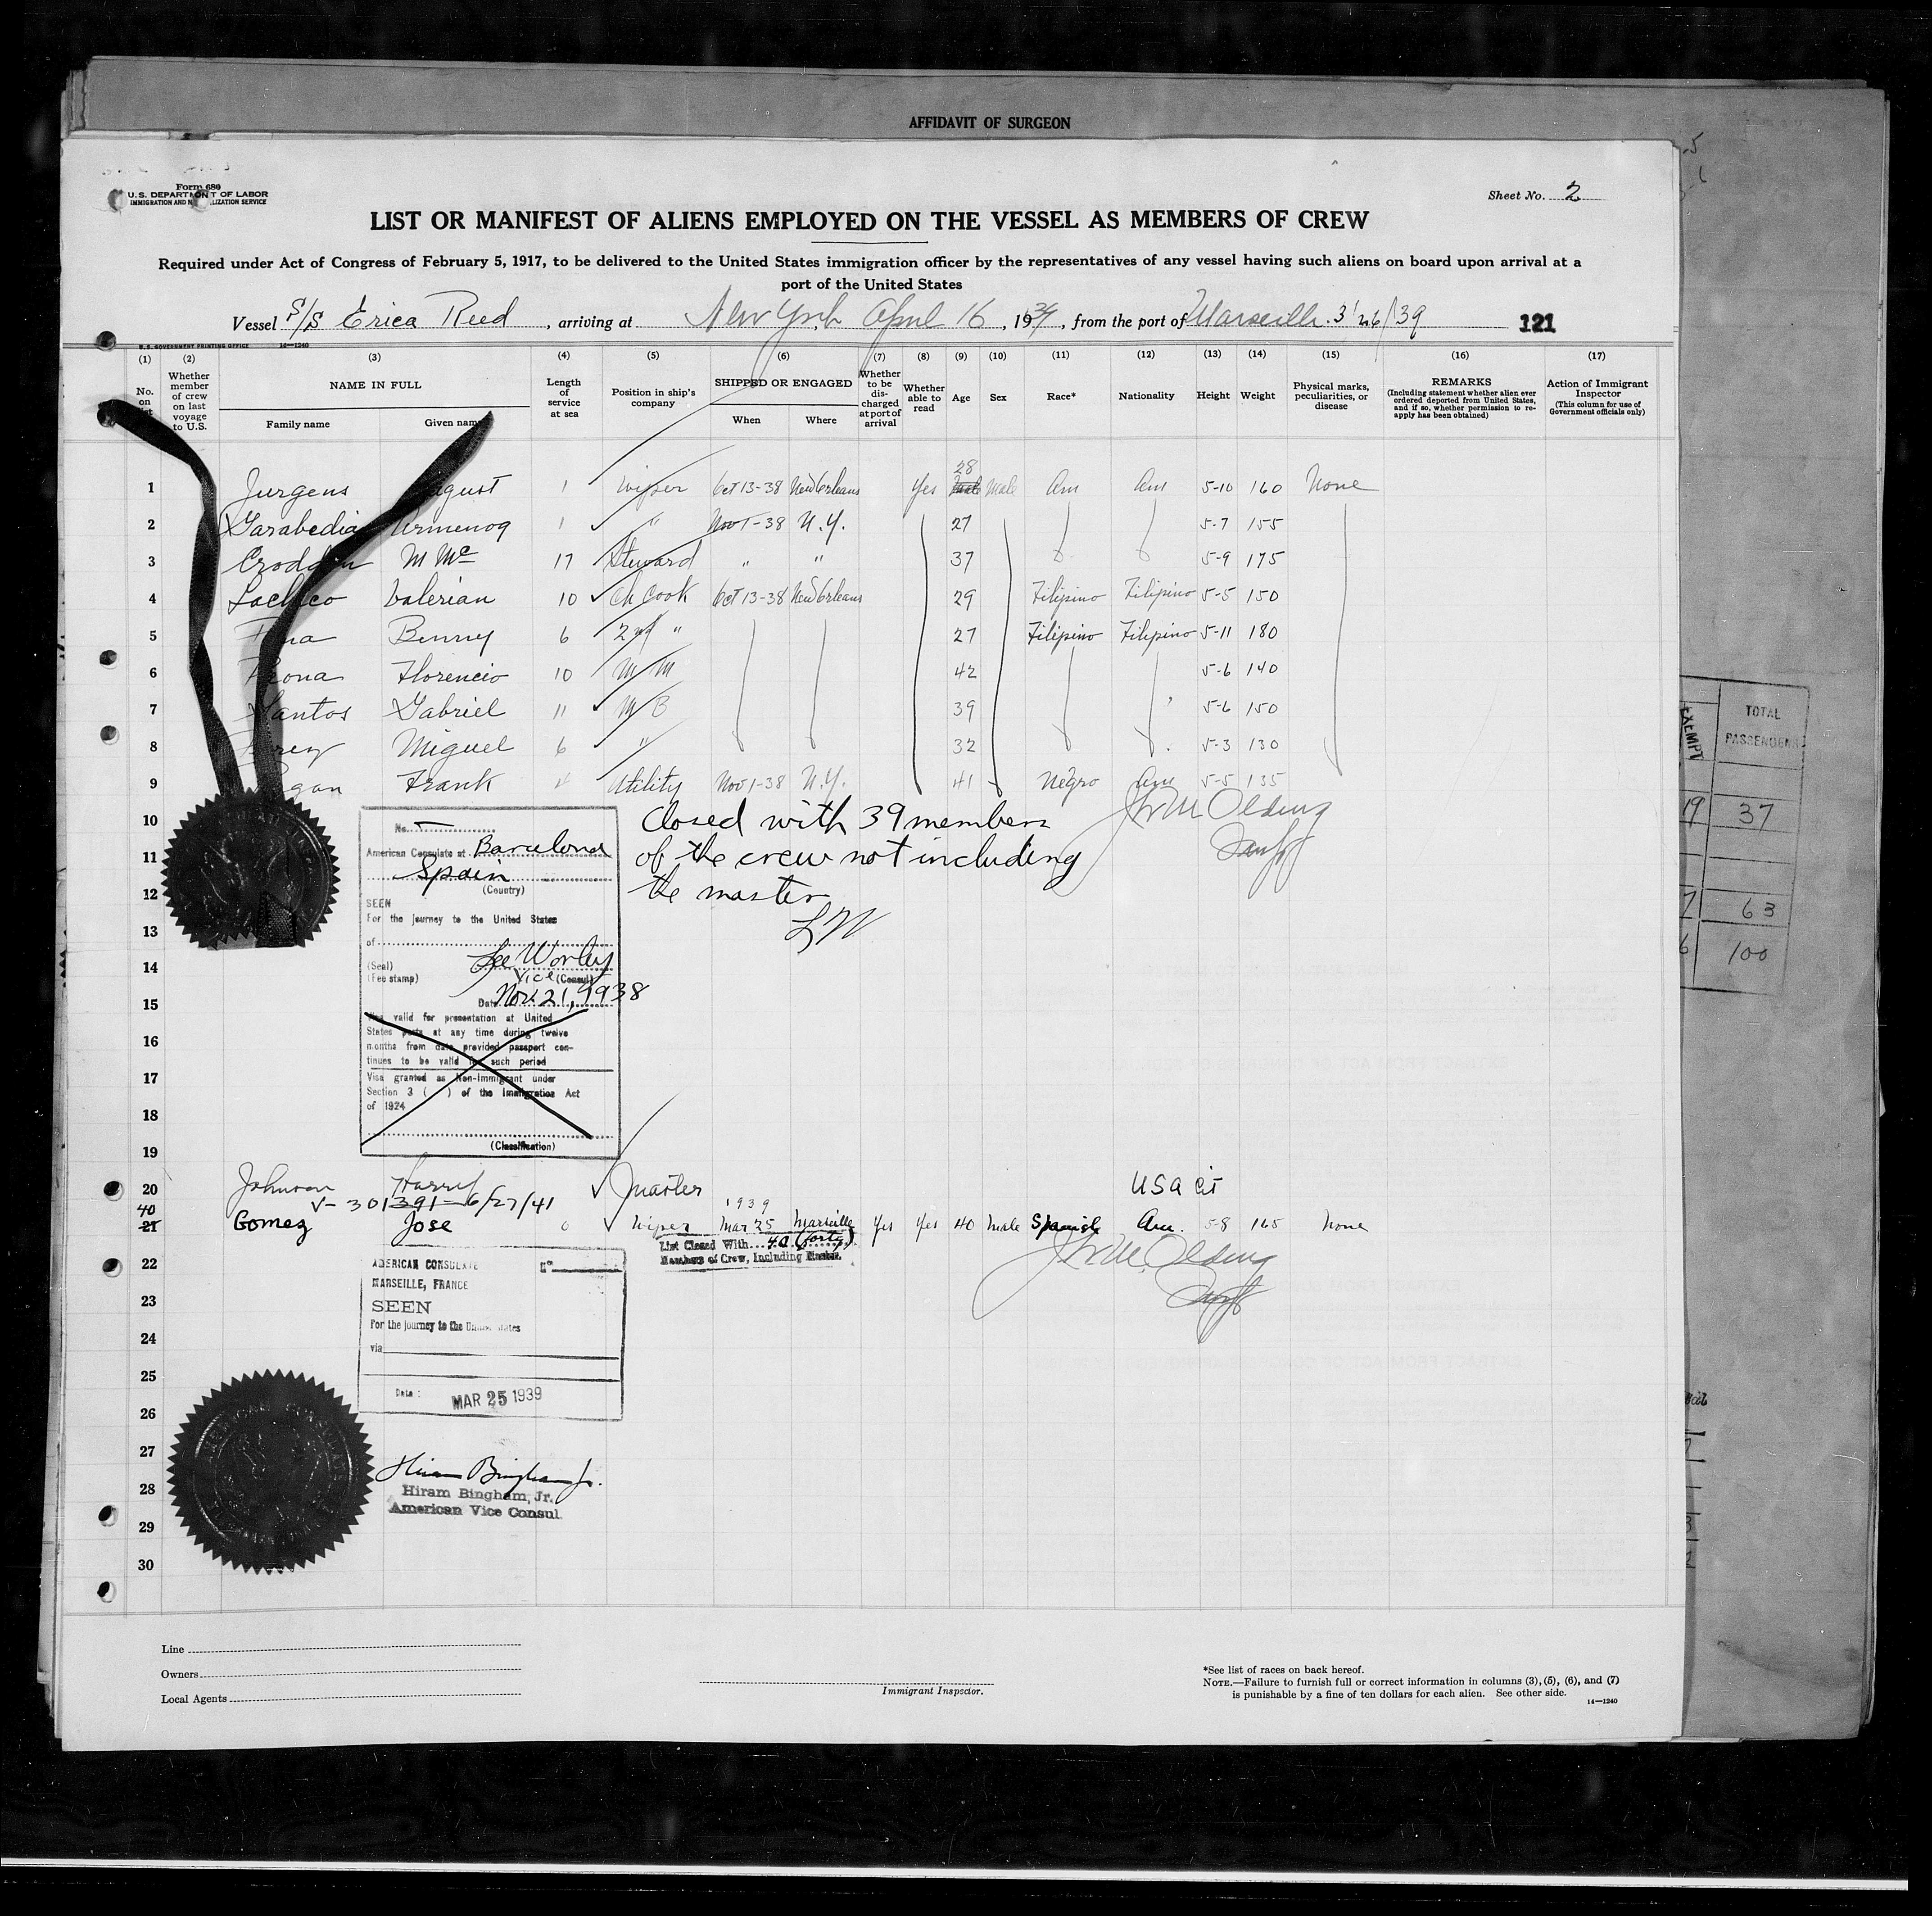 AFFIDAVIT OF SURGEON
Form 680
U.S. DEPARTMENT OF LABOR
IMMIGRATION AND N LIZATION SERVICE
Sheet No. 2
LIST OR MANIFEST OF ALIENS EMPLOYED ON THE VESSEL AS MEMBERS OF CREW
Required under Act of Congress of February 5, 1917, to be delivered to the United States immigration officer by the representatives of any vessel having such aliens on board upon arrival at a
port of the United States
Vessel S/S Erica Reed, arriving at New York April 16, 1939, from the port of Marseille. 3/26/39 121
U.S. GOVERNMENT PRINTING OFFICE 14—1240
(1) (2) (3) (4) (5) (6) (7) (8) (9) (10) (11) (12) (13) (14) (15) (16) (17)
No. on list Whether member of crew on last voyage to U.S. NAME IN FULL Family name Given name Length of service at sea Position in ship's company SHIPPED OR ENGAGED When Where Whether to be discharged at port of arrival Whether able to read Age Sex Race* Nationality Height Weight Physical marks, peculiarities, or disease REMARKS (Including statement whether alien ever ordered deported from United States, and if so, whether permission to re-apply has been obtained) Action of Immigrant Inspector (This column for use of Government officials only)
28
1 Jurgens August 1 Wiper Oct 13-38 New Orleans Yes Male Male Am Am 5-10 160 None
2 Garabedian Armenog 1 " Nov 1-38 N.Y. 27 5-7 155
3 Croddin M Mc 17 Steward " " 37 5-9 175
4 Pacheco Valerian 10 Ch Cook Oct 13-38 New Orleans 29 Filipino Filipino 5-5 150
5 Benny 6 2nd " 27 Filipino Filipino 5-11 180
6 Florencio 10 M/M 42 5-6 140
7 Santos Gabriel 11 M/B 39 5-6 150
8 Miguel 6 " 32 5-3 130
9 gan Frank 4 Utility Nov 1-38 N.Y. 41 Negro Am 5-5 135
10
11
12
13
14
15
16
17
18
19
No.
American Consulate at Barcelona
Spain
(Country)
SEEN
For the journey to the United States
of
(Seal)
(Fee stamp)
Lee Worley
Vice (Consul)
Date Nov. 21, 1938
Visa valid for presentation at United
States ports at any time during twelve
months from date provided passport con-
tinues to be valid for such period
Visa granted as Non-Immigrant under
Section 3 ( ) of the Immigration Act
of 1924
(Classification)
Closed with 39 members
of the crew not including
the master
LW
Jno M Olding
20 Johnson Harry Master USA Cit
V-301391-6/27/41
1939
40
21 Gomez Jose 0 Wiper Mar 25 Marseille Yes Yes 40 Male Spanish Am. 5-8 165 None
List Closed With 40 (forty)
Members of Crew, Including Master.
Jno M. Olding
22
23
24
25
26
27
28
29
30
AMERICAN CONSULATE
MARSEILLE, FRANCE
SEEN
For the journey to the United States
via
Date: MAR 25 1939
Hiram Bingham Jr.
Hiram Bingham, Jr.
American Vice Consul
Line
Owners
Local Agents
Immigrant Inspector.
*See list of races on back hereof.
NOTE.—Failure to furnish full or correct information in columns (3), (5), (6), and (7)
is punishable by a fine of ten dollars for each alien. See other side.
14—1240
EXEMPT
TOTAL
PASSENGERS
19 37
7 63
6 100